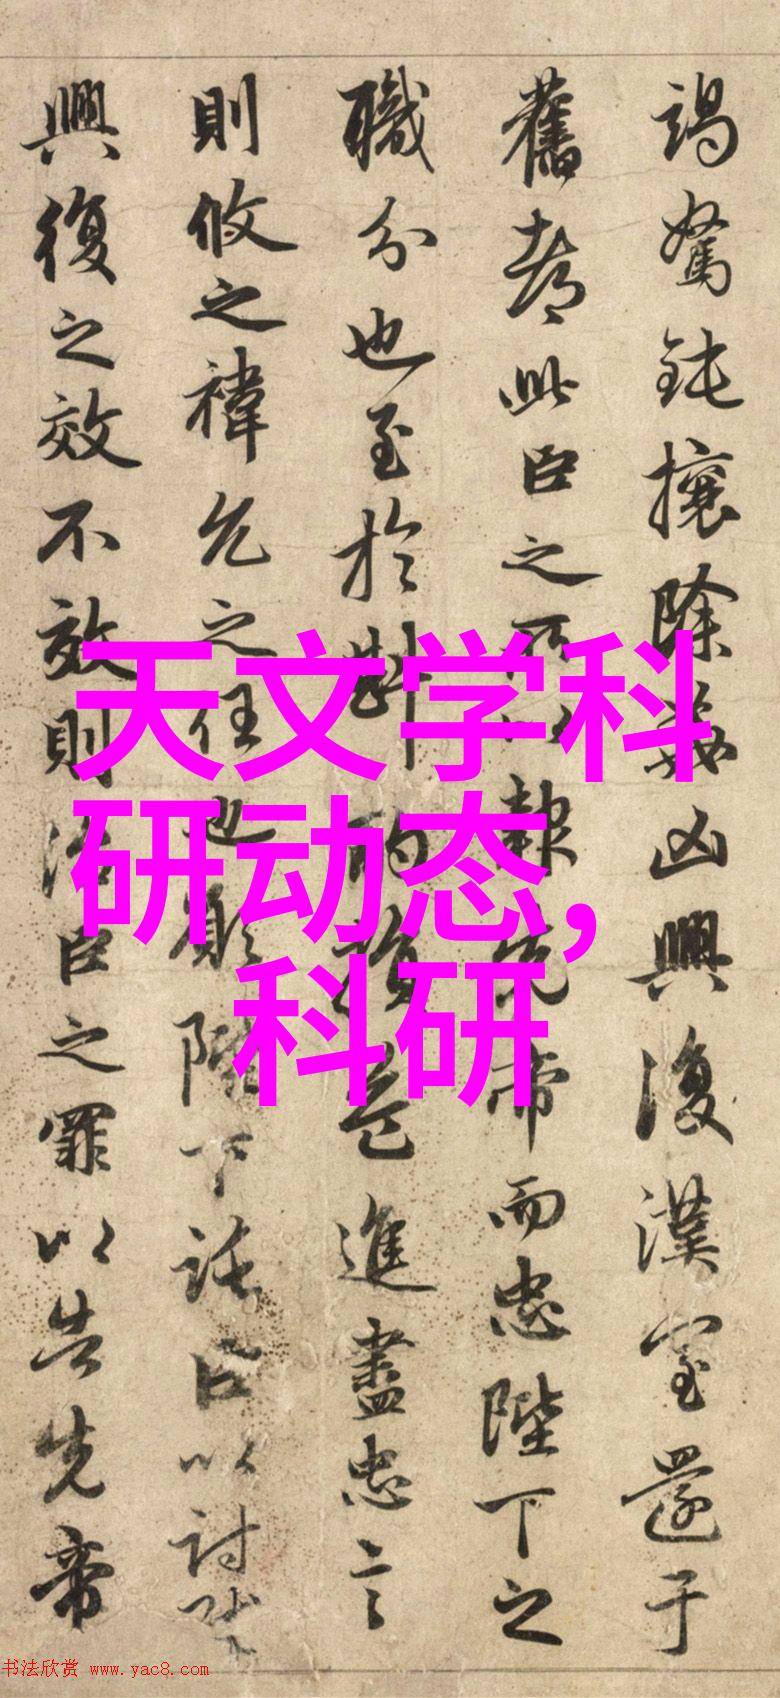 竭駑鈍攘除姦凶興復漢室還于
舊都此臣之所以報先帝而忠陛下之
職分也至於斟酌損益進盡忠言
則攸之褘允之任也願陛下託臣以討賊
興復之效不效則治臣之罪以告先帝
天文学科
研动态，
科研
书法欣赏 www.yac8.com